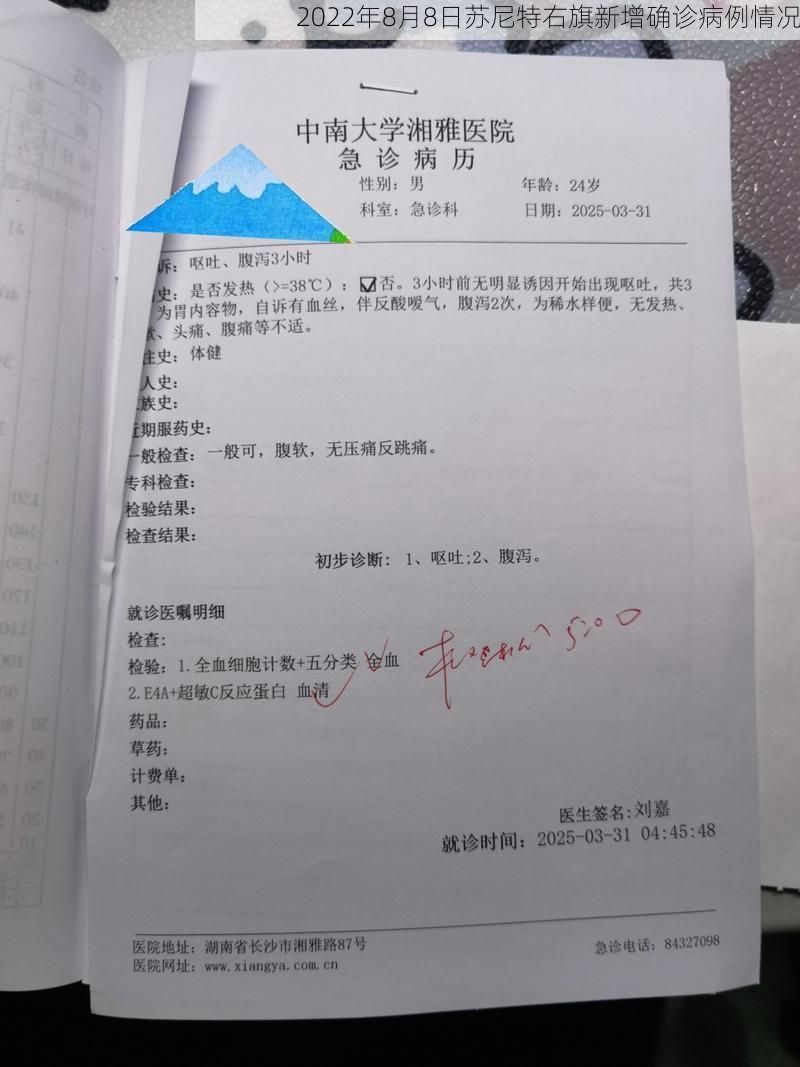 2022年8月8日苏尼特右旗新增确诊病例情况
中南大学湘雅医院
急诊病历
性别：男 年龄：24岁
科室：急诊科 日期：2025-03-31
诉：呕吐、腹泻3小时
史：是否发热（>=38℃）：☑否。3小时前无明显诱因开始出现呕吐，共3
为胃内容物，自诉有血丝，伴反酸嗳气，腹泻2次，为稀水样便，无发热、
、头痛、腹痛等不适。
往史：体健
人史：
族史：
近期服药史：
一般检查：一般可，腹软，无压痛反跳痛。
专科检查：
检验结果：
检查结果：
初步诊断： 1、呕吐;2、腹泻。
就诊医嘱明细
检查：
检验：1.全血细胞计数+五分类 全血
2.E4A+超敏C反应蛋白 血清
5:00
药品：
草药：
计费单：
其他：
医生签名:刘嘉
就诊时间：2025-03-31 04:45:48
医院地址：湖南省长沙市湘雅路87号 急诊电话：84327098
医院网址：www.xiangya.com.cn
41
40
39
150
140
130
120
110
100
90
50 80
40 70
30 6
20
10